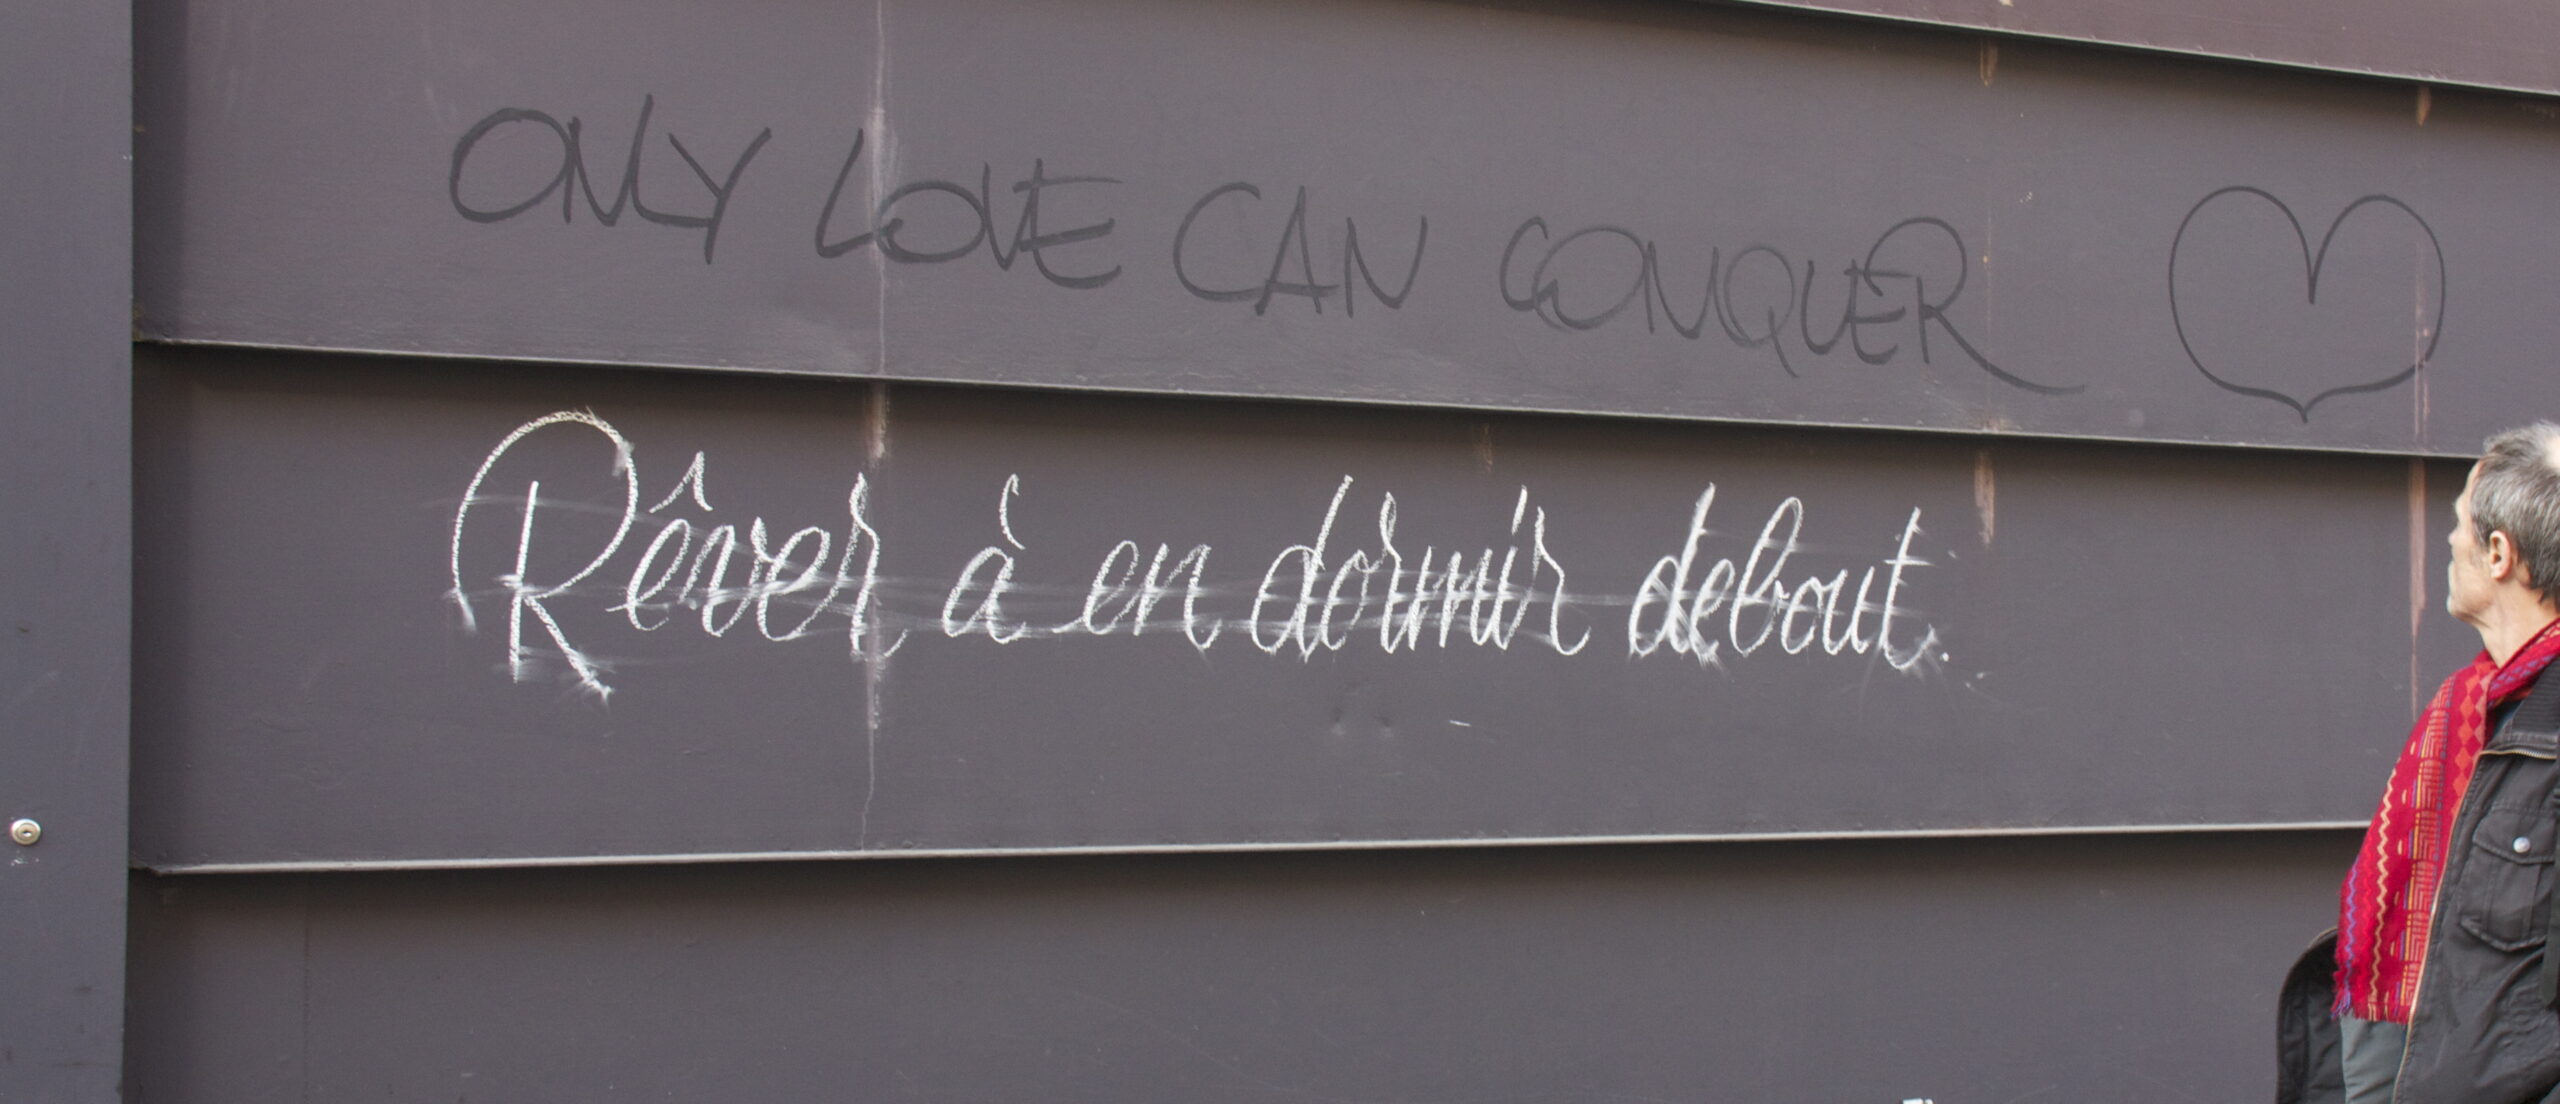 ONLY LOVE CAN CONQUER
Rêver à en dormir debout.